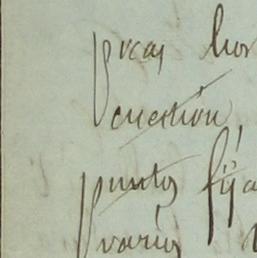 pocas hor
cuestión,
puntos fija
varios